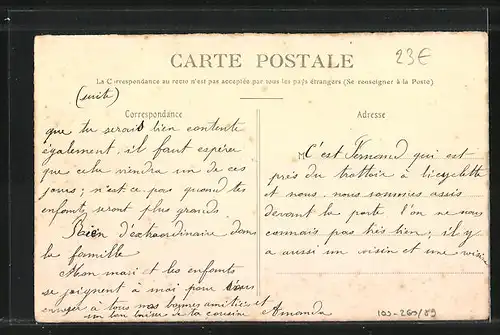 CARTE POSTALE
23€
La Correspondance au recto n'est pas acceptée par tous les pays étrangers (Se renseigner à la Poste)
(suite)
Correspondance
que tu serais bien contente
également, il faut espérer
que cela viendra un de ces
jours; n'est ce pas quand tes
enfants seront plus grands.
Rien d'extraordinaire dans
la famille
Mon mari et les enfants
se joignent à moi pour vous
envoyer à tous nos bonnes amitiés et
un bon baiser de ta cousine Amanda
Adresse
M
C'est Fernand qui est
près du trottoir à bicyclette
et nous, nous sommes assis
devant la porte l'on ne nous
connais pas très bien; il y
a aussi un voisin et une voisine
103-260/89